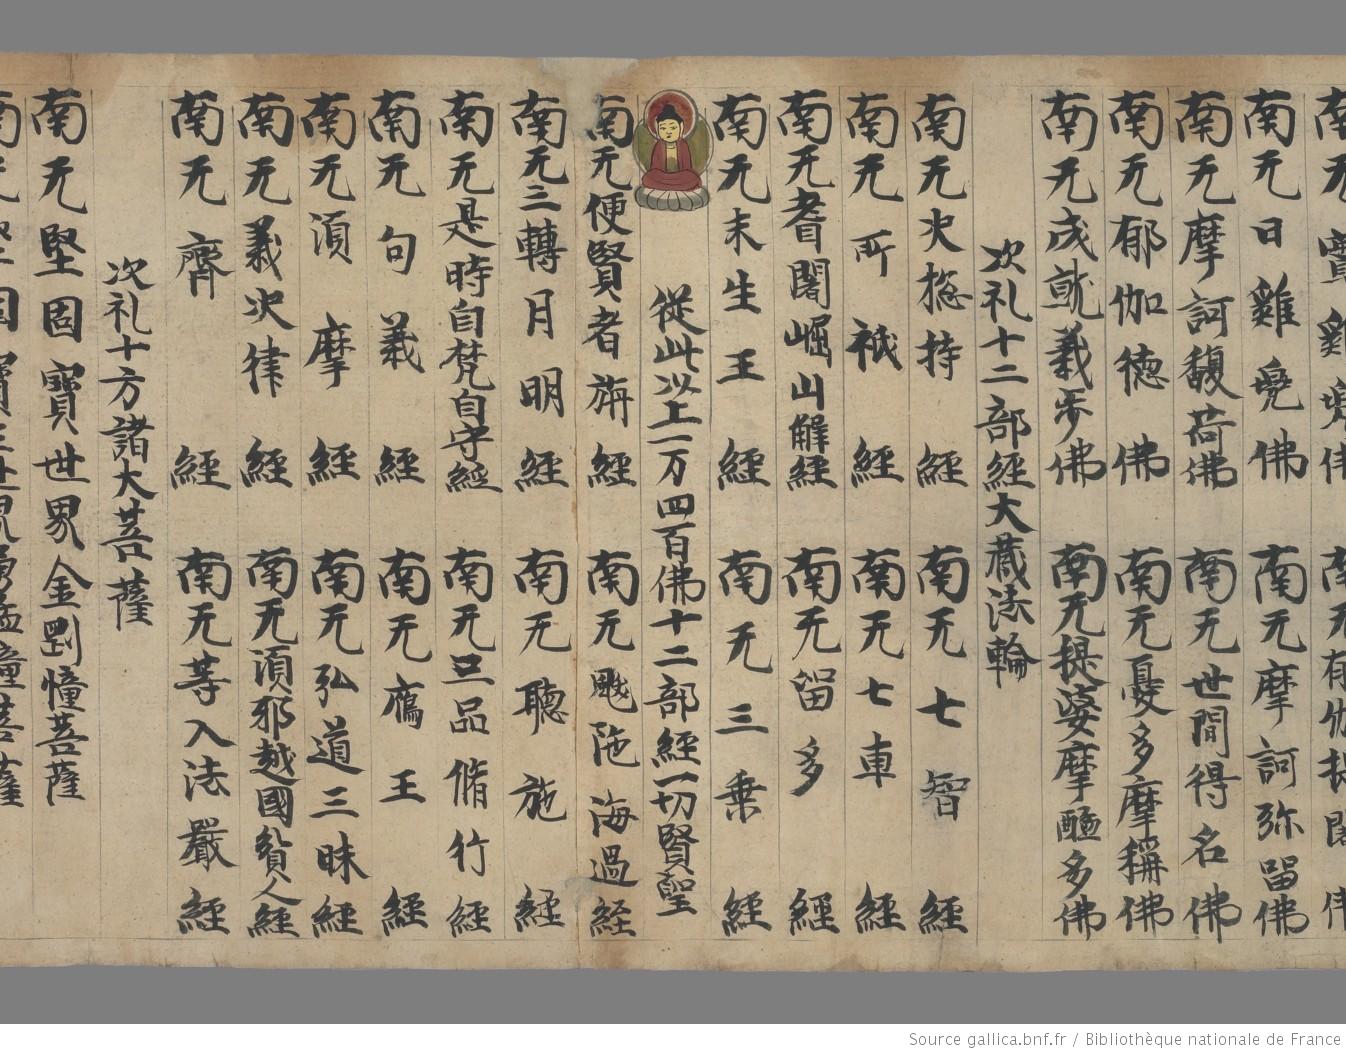 南无日雞兠佛　南无摩訶弥留佛
南无摩訶馥荷佛　南无世間得名佛
南无郁伽德佛　南无憂多摩稱佛
南无成就義步佛　南无提婆摩醯多佛
次礼十二部經大藏法輪
南无火揔持經　南无七智經
南无所祇經　南无七車經
南无耆闍崛山解經　南无留多經
南无未生王經　南无三乗經
從此以上一万四百佛十二部經一切賢聖
南无便賢者旃經　南无颰陁海過经
南无三轉月明經　南无聽施經
南无是時自梵自守經　南无三品脩行經
南无句義經　南无鴈王經
南无湏摩經　南无弘道三昧經
南无義决律經　南无湏邪越國貧人經
南无齊經　南无等入法嚴經
次礼十方諸大菩薩
南无堅固寶世界金剛幢菩薩
Source gallica.bnf.fr / Bibliothèque nationale de France